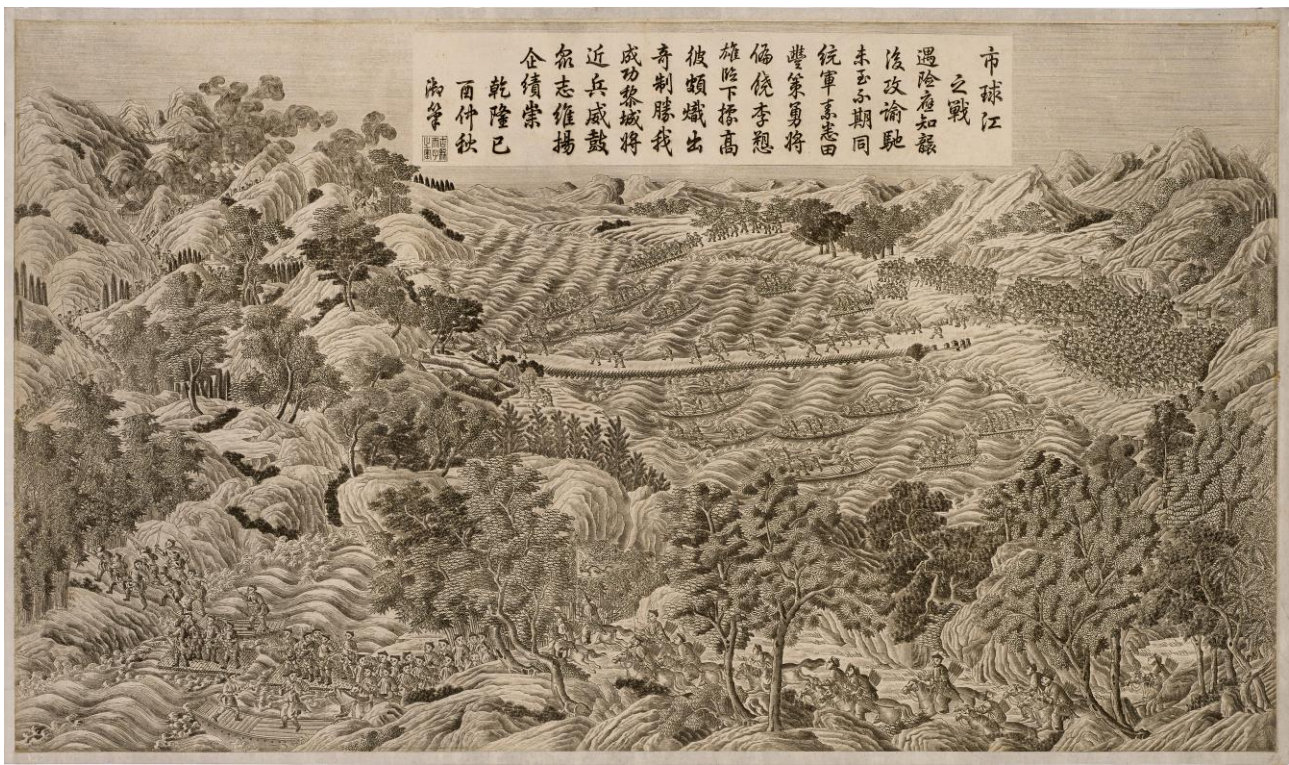 市球江
之戰
遇險應知襲
後攻諭馳
未至不期同
統軍素恚田
豐策勇將
偏饒李愬
雄臨下據高
彼頗熾出
奇制勝我
成功黎城將
近兵威鼓
衆志維揚
企績崇
乾隆己
酉仲秋
御筆